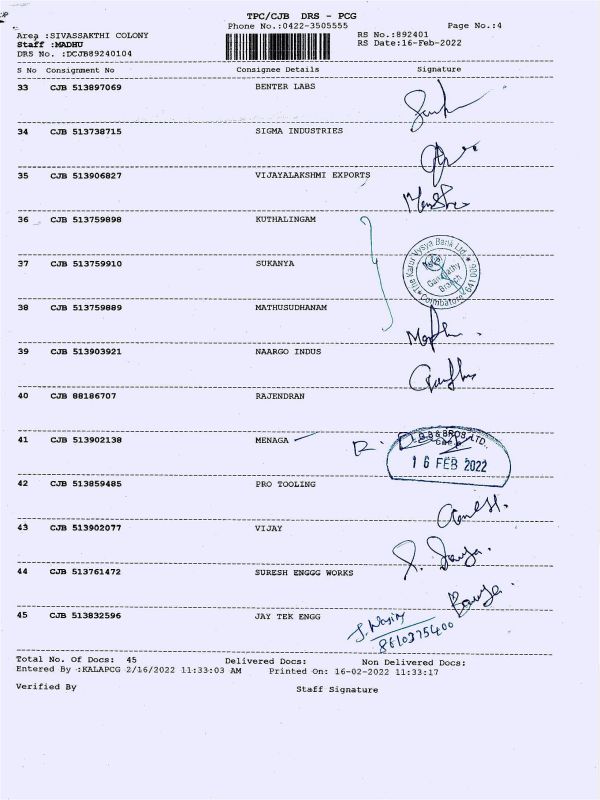 TPC/CJB DRS - PCG
Phone No.:0422-3505555 Page No.:4
Area :SIVASSAKTHI COLONY RS No.:892401
Staff :MADHU RS Date:16-Feb-2022
DRS No. :DCJB89240104
S No Consignment No Consignee Details Signature
33 CJB 513897069 BENTER LABS
34 CJB 513738715 SIGMA INDUSTRIES
35 CJB 513906827 VIJAYALAKSHMI EXPORTS
36 CJB 513759898 KUTHALINGAM
The Karur Vysya Bank Ltd.
37 CJB 513759910 SUKANYA
Ganapathy
Branch
Coimbatore 641 006
38 CJB 513759889 MATHUSUDHANAM
39 CJB 513903921 NAARGO INDUS
40 CJB 88186707 RAJENDRAN
41 CJB 513902138 MENAGA
& BROS LTD.,
16 FEB 2022
42 CJB 513859485 PRO TOOLING
43 CJB 513902077 VIJAY
44 CJB 513761472 SURESH ENGGG WORKS
45 CJB 513832596 JAY TEK ENGG
8610375400
Total No. Of Docs: 45 Delivered Docs: Non Delivered Docs:
Entered By :KALAPCG 2/16/2022 11:33:03 AM Printed On: 16-02-2022 11:33:17
Verified By Staff Signature